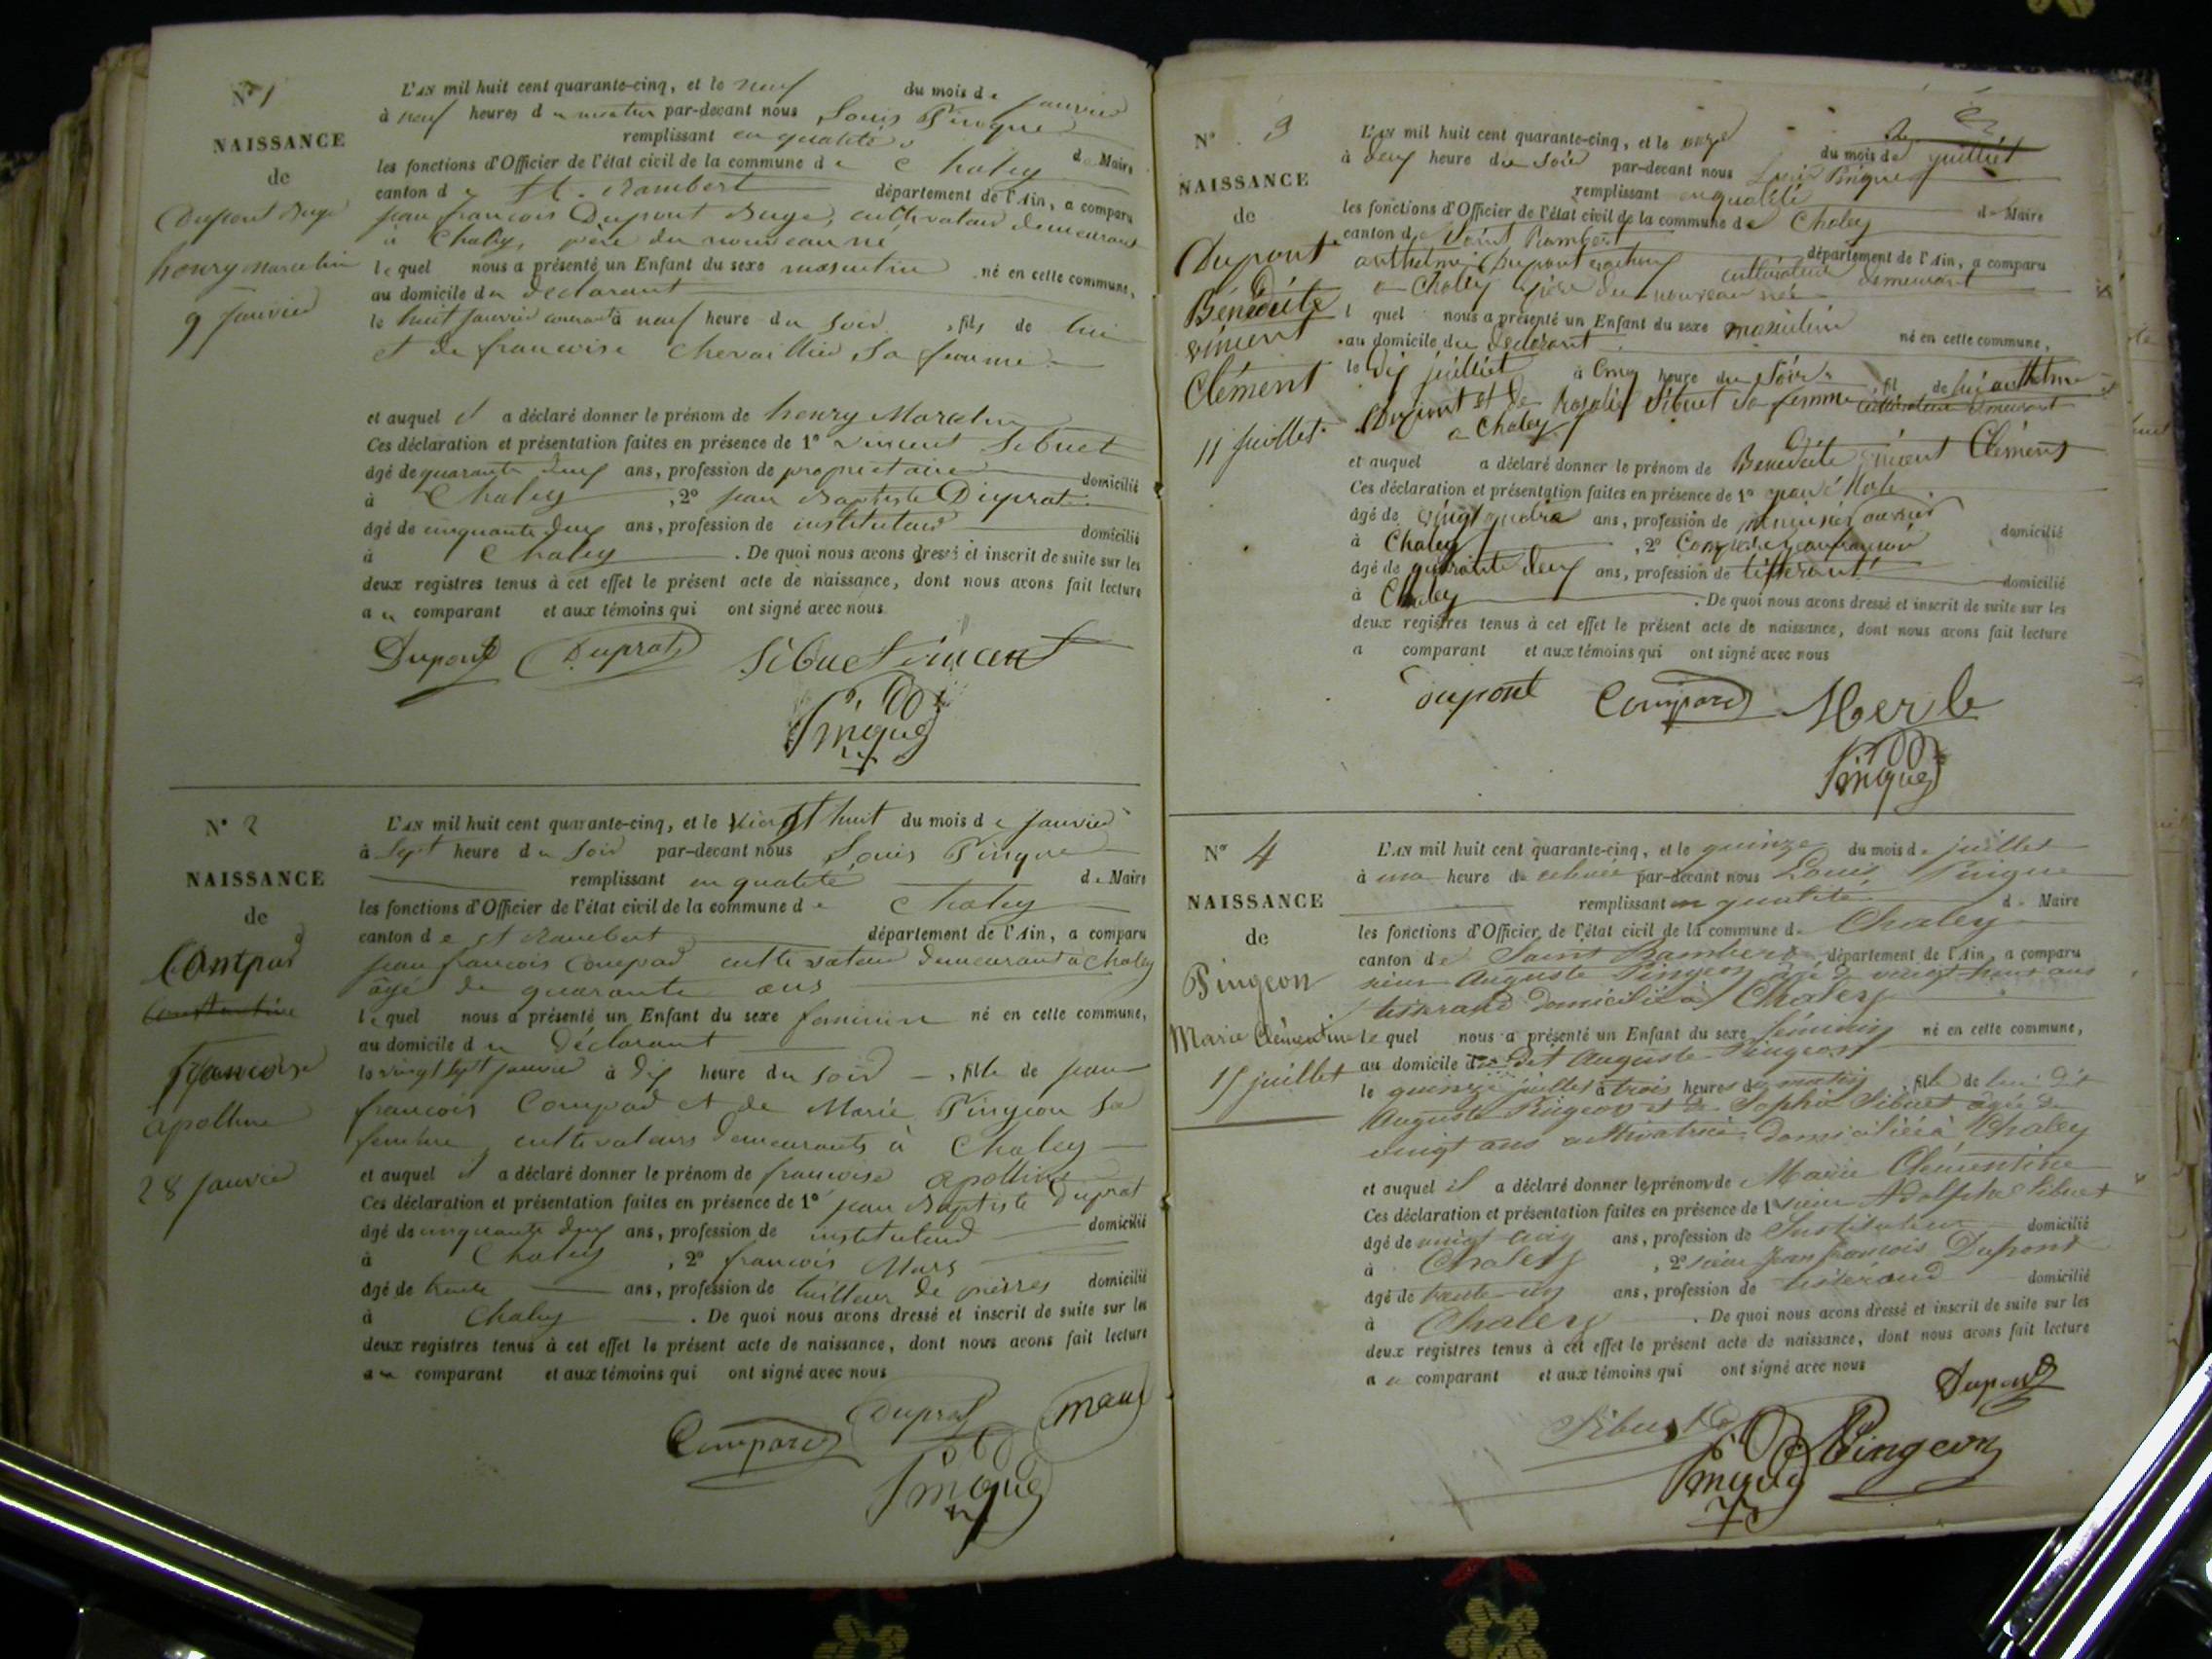 N° 1
NAISSANCE
de
Dupont Buge
henry marcelin
9 janvier
L'AN mil huit cent quarante-cinq, et le neuf du mois de janvier
à neuf heures du matin par-devant nous Louis Pingue
remplissant en qualité de Maire
les fonctions d'Officier de l'état civil de la commune de Chaley
canton de St. Rambert département de l'Ain, a comparu
jean francois Dupont Buge, cultivateur demeurant
à Chaley, père du nouveau né
lequel nous a présenté un Enfant du sexe masculin né en cette commune,
au domicile du déclarant
le huit janvier courant à neuf heure du soir, fils de lui
et de francoise Chevaillier sa femme
et auquel il a déclaré donner le prénom de henry Marcelin
Ces déclaration et présentation faites en présence de 1° vincent Sibuet
âgé de quarante deux ans, profession de propriétaire domicilié
à Chaley, 2° jean Baptiste Duprat
âgé de cinquante deux ans, profession de instituteur domicilié
à Chaley. De quoi nous avons dressé et inscrit de suite sur les
deux registres tenus à cet effet le présent acte de naissance, dont nous avons fait lecture
au comparant et aux témoins qui ont signé avec nous
Dupont Duprat Sibuet vincent
Pingue
N° 2
NAISSANCE
de
Compad
Francoise
apolline
28 janvier
L'AN mil huit cent quarante-cinq, et le vingt huit du mois de janvier
à sept heure du soir par-devant nous Louis Pingue
remplissant en qualité de Maire
les fonctions d'Officier de l'état civil de la commune de Chaley
canton de st Rambert département de l'Ain, a comparu
jean francois Compad cultivateur demeurant à Chaley
âgé de quarante ans
lequel nous a présenté un Enfant du sexe feminin né en cette commune,
au domicile du déclarant
le vingt sept janvier à dix heure du soir, fille de jean
francois Compad et de Marie Pingeon sa
femme, cultivateurs demeurants à Chaley
et auquel il a déclaré donner le prénom de francoise apolline
Ces déclaration et présentation faites en présence de 1° jean Baptiste Duprat
âgé de cinquante deux ans, profession de instituteur domicilié
à Chaley, 2° francois Mars
âgé de trente ans, profession de tailleur de pierres domicilié
à Chaley. De quoi nous avons dressé et inscrit de suite sur les
deux registres tenus à cet effet le présent acte de naissance, dont nous avons fait lecture
au comparant et aux témoins qui ont signé avec nous
Duprat
Compard
Pingue
N° 3
NAISSANCE
de
Dupont
Bénédicte
vincent
Clément
11 juillet
L'AN mil huit cent quarante-cinq, et le onze du mois de juilliet
à deux heure du soir par-devant nous Louis Pingue
remplissant en qualité de Maire
les fonctions d'Officier de l'état civil de la commune de Chaley
canton de Saint Rambert département de l'Ain, a comparu
anthelme Dupont cultivateur demeurant
a Chaley père du nouveau née
l quel nous a présenté un Enfant du sexe masculin né en cette commune,
au domicile du declarant
le dix juilliet à cinq heure du soir fil de lui anthelme
Dupont et de Rosalie Sibuet sa femme cultivateur demeurant
a Chaley
et auquel a déclaré donner le prénom de Benedicte vincent Clément
Ces déclaration et présentation faites en présence de 1° Merle
âgé de vingt quatre ans, profession de domicilié
à Chaley, 2° Compard jean francois
âgé de quarante deux ans, profession de tisserant domicilié
à Chaley. De quoi nous avons dressé et inscrit de suite sur les
deux registres tenus à cet effet le présent acte de naissance, dont nous avons fait lecture
a comparant et aux témoins qui ont signé avec nous
Dupont Compard Merle
Pingue
N° 4
NAISSANCE
de
Pingeon
Marie Clémentine
15 juillet
L'AN mil huit cent quarante-cinq, et le quinze du mois de juillet
à une heure de par-devant nous Louis Pingue
remplissant en qualité de Maire
les fonctions d'Officier de l'état civil de la commune de Chaley
canton de Saint Rambert département de l'Ain, a comparu
sieur Auguste Pingeon âgé de vingt neuf ans
tisserand domicilié à Chaley
lequel nous a présenté un Enfant du sexe féminin né en cette commune,
au domicile du dit Auguste Pingeon
le quinze juillet à trois heures du matin, fille de lui dit
Auguste Pingeon et de Sophie Sibuet âgée de
vingt ans cultivatrice domiciliée à Chaley
et auquel il a déclaré donner le prénom de Marie Clémentine
Ces déclaration et présentation faites en présence de 1° sieur Adolphe Sibuet
âgé de vingt cinq ans, profession de Instituteur domicilié
à Chaley, 2° sieur Jean francois Dupont
âgé de trente-un ans, profession de tisserand domicilié
à Chaley. De quoi nous avons dressé et inscrit de suite sur les
deux registres tenus à cet effet le présent acte de naissance, dont nous avons fait lecture
au comparant et aux témoins qui ont signé avec nous
Dupont
Sibuet Pingeon
Pingue